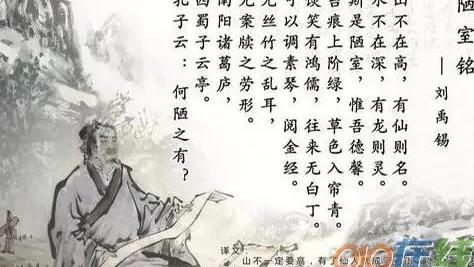 陋室铭
—刘禹锡
山不在高，有仙则名。
水不在深，有龙则灵。
斯是陋室，惟吾德馨。
苔痕上阶绿，草色入帘青。
谈笑有鸿儒，往来无白丁。
可以调素琴，阅金经。
无丝竹之乱耳，
无案牍之劳形。
南阳诸葛庐，
西蜀子云亭。
孔子云：何陋之有？
译文
山不一定要高，有了仙人就成
在线